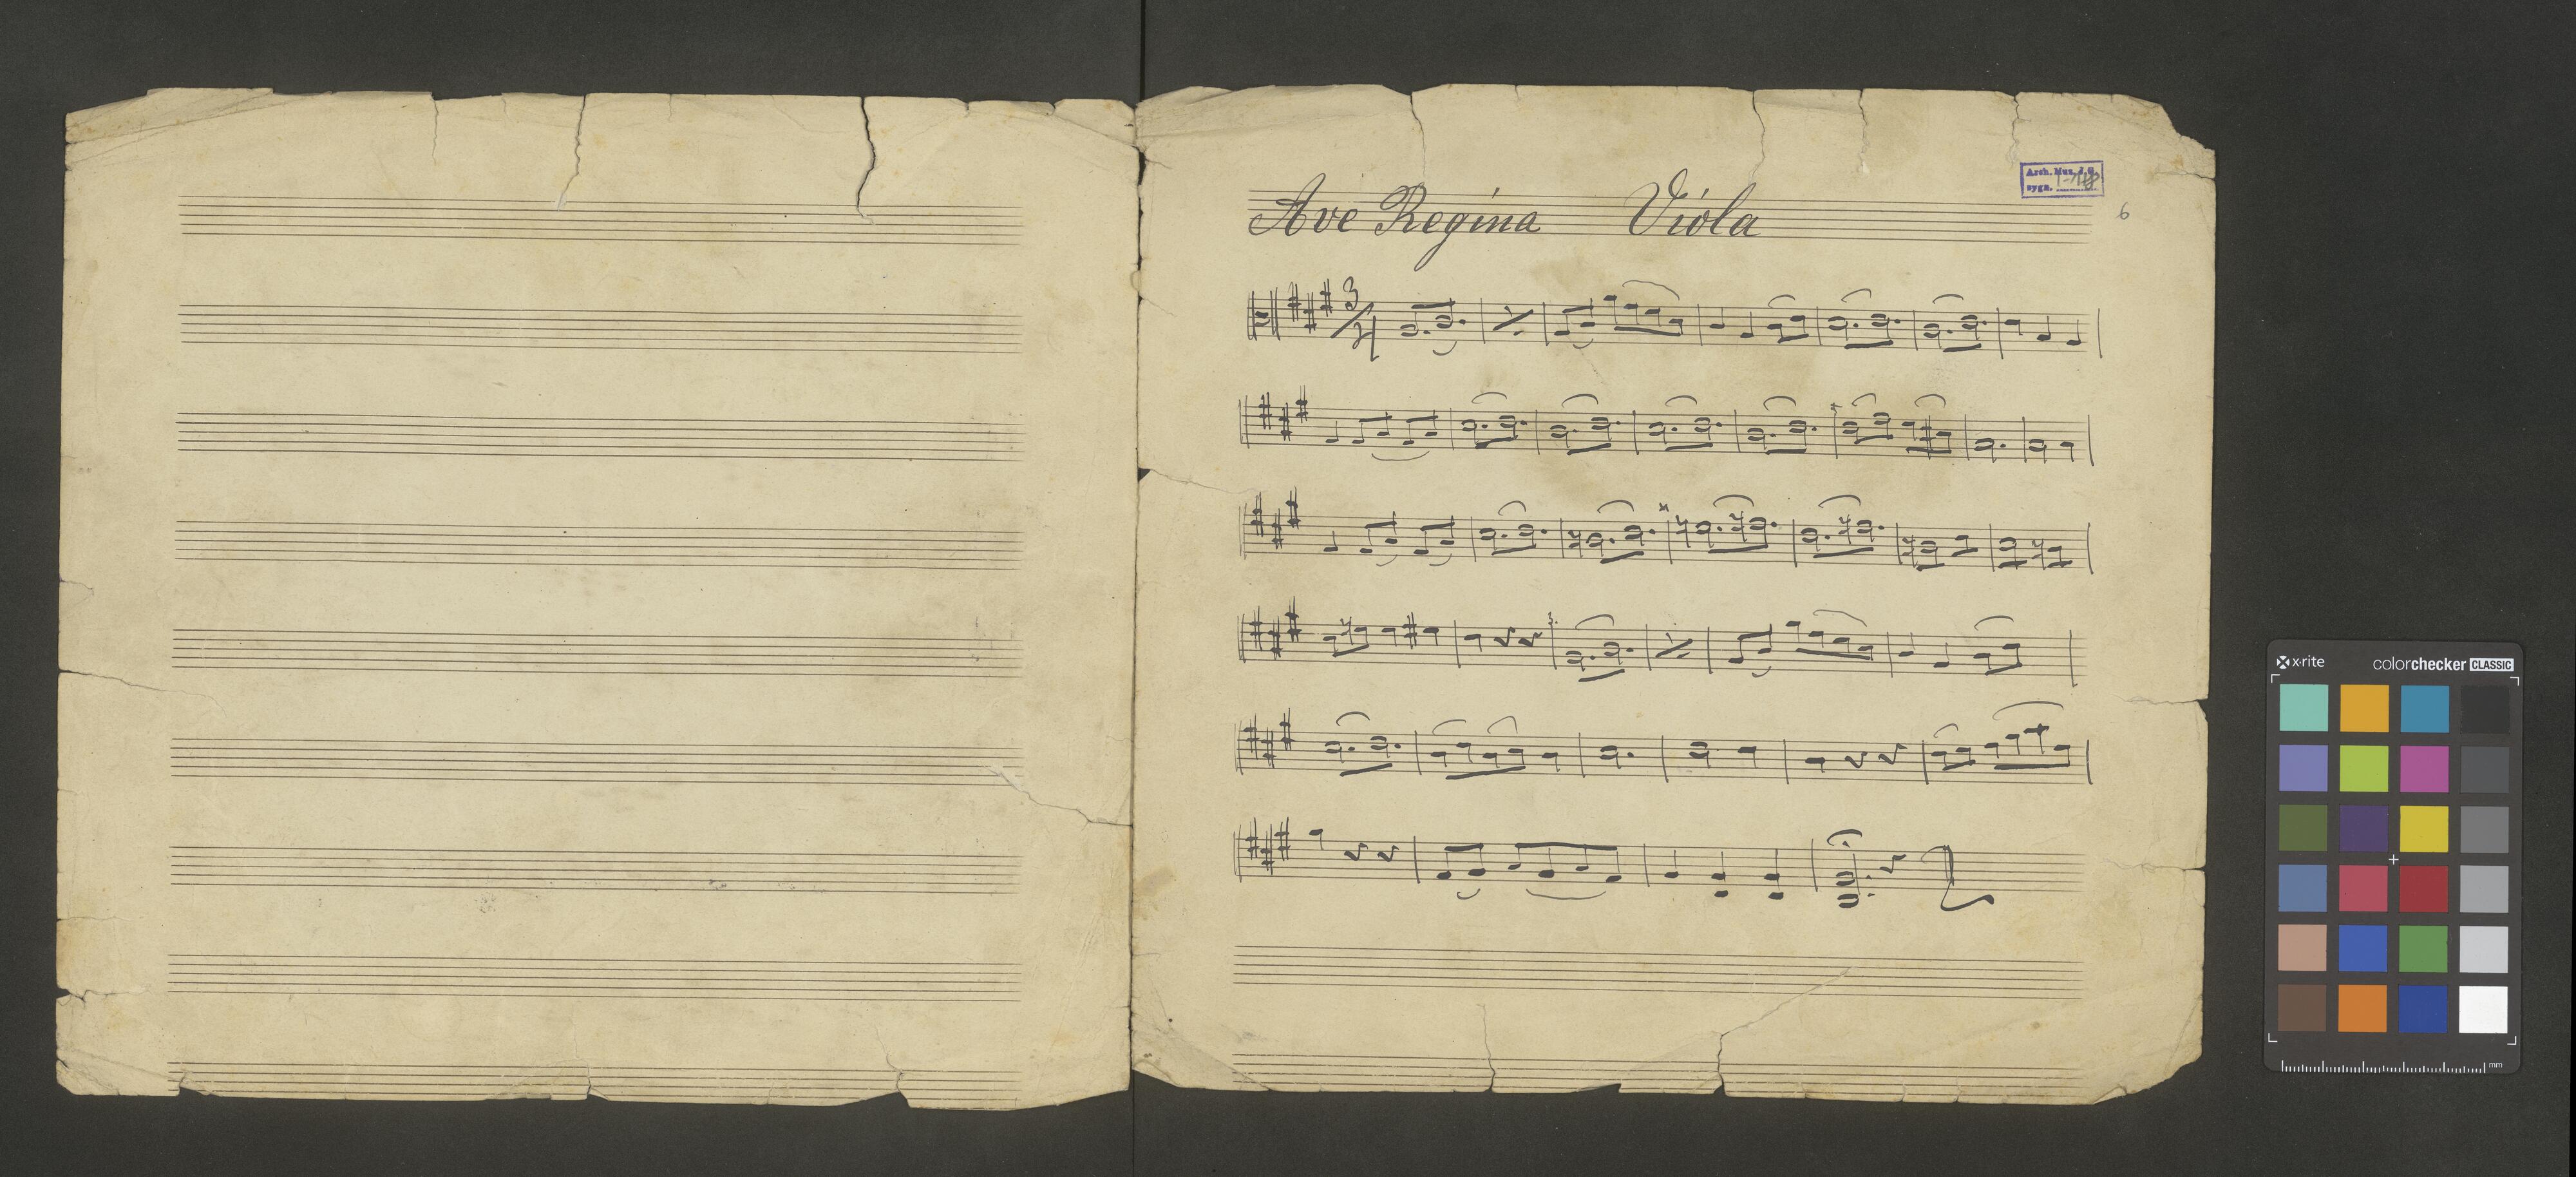 Ave Regina Viola
Arch. Mus. J. G.
sygn.
6
3/4
x-rite colorchecker CLASSIC
mm